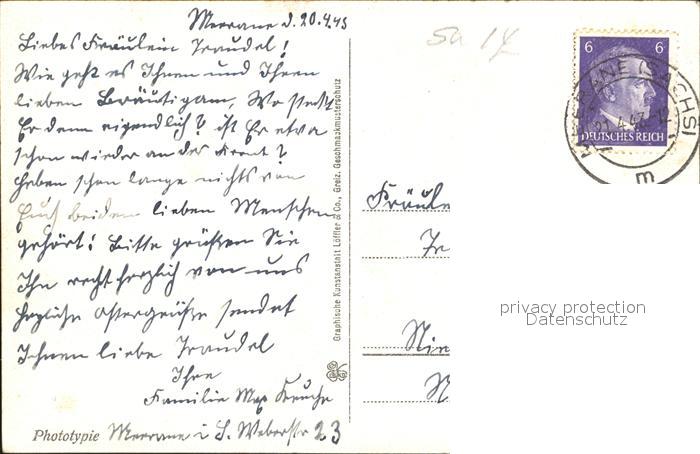 Meerane d. 20.4.43
Liebes Fräulein Traudel!
Wie geht es Ihnen und Ihrem
lieben Bräutigam, Wo steckt
Er denn eigendlich? ist Er etwa
schon wieder an der Front?
haben schon lange nichts von
Euch beiden lieben Menschen
gehört! Bitte grüßen Sie
Ihn recht herzlich von uns
herzliche Ostergrüße sendet
Ihnen liebe Traudel
Ihre
Familie Max
Phototypie Meerane i S. Weberstr 23
Graphische Kunstanstalt Löffler & Co., Greiz. Geschmackmusterschutz
6 6
DEUTSCHES REICH
MEERANE (SACHS)
21.4.43-12
m
Fräule
privacy protection
Datenschutz